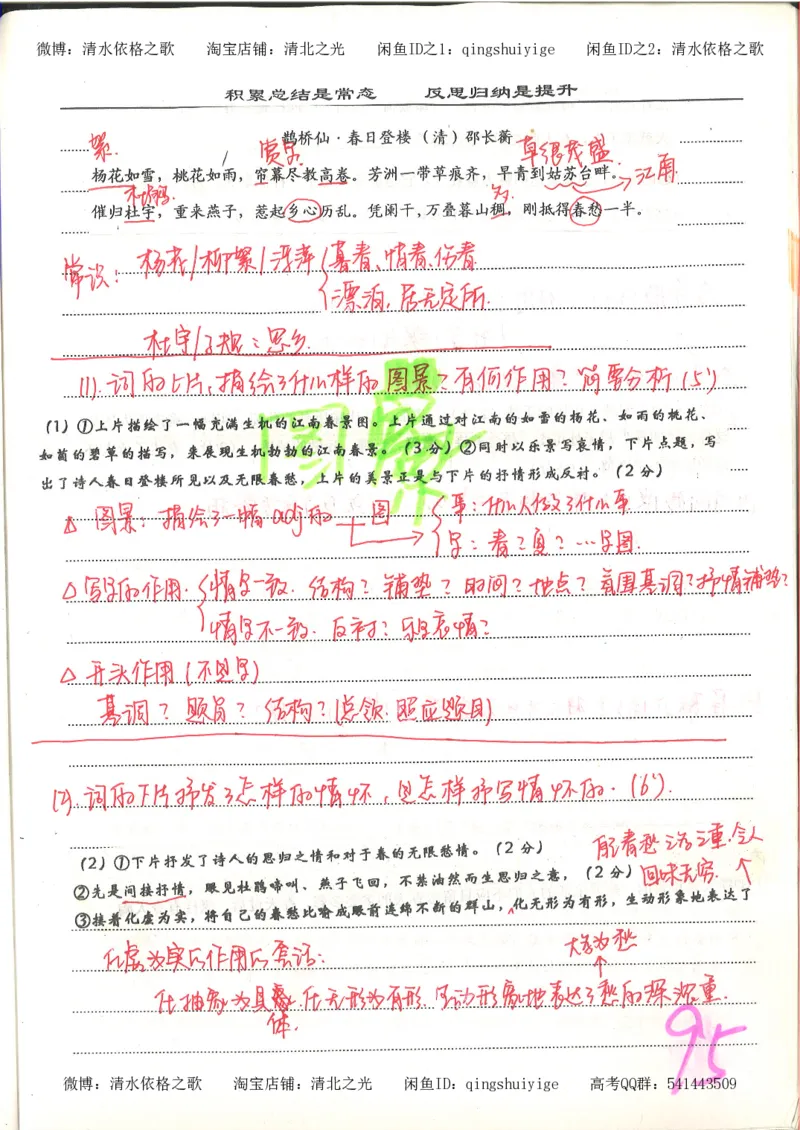 微博：清水依格之歌 淘宝店铺：清北之光 闲鱼ID之1：qingshuiyige 闲鱼ID之2：清水依格之歌
积累总结是常态 反思归纳是提升
鹊桥仙·春日登楼（清）邵长蘅
絮 赏景 草很茂盛
杨花如雪，桃花如雨，帘幕尽教高卷。芳洲一带草痕齐，早青到姑苏台畔。
江南
杜鹃 多
催归杜宇，重来燕子，惹起乡心历乱。凭阑干，万叠暮山稠，刚抵得春愁一半。
常识：杨花/柳絮/浮萍 暮春、惜春、伤春
漂泊，居无定所
杜宇/子规：思乡
(1).词的上片，描绘了什么样的图景？有何作用？简要分析(5')
图景
(1）①上片描绘了一幅充满生机的江南春景图。上片通过对江南的如雪的杨花、如雨的桃花、
如茵的碧草的描写，来展现生机勃勃的江南春景。（3分）②同时以乐景写哀情，下片点题，写
出了诗人春日登楼所见以及无限春愁，上片的美景正是与下片的抒情形成反衬。（2分）
△ 图景：描绘了一幅adj的 图 事：什么人做了什么事
景：春？夏？…景图.
△写景的作用. 情景一致. 结构？铺垫？时间？地点？氛围基调？抒情铺垫？
情景不一致. 反衬？乐景哀情？
△ 开头作用(不见景)
基调？题旨？结构？(总领.照应题目)
(2).词的下片抒发了怎样的情怀，是怎样抒写情怀的.(6').
（2）①下片抒发了诗人的思归之情和对于春的无限愁情。（2分）
②先是间接抒情，眼见杜鹃啼叫、燕子飞回，不禁油然而生思归之意，（2分）
回味无穷.
③接着化虚为实，将自己的春愁比喻成眼前连绵不断的群山，化无形为有形，生动形象地表达了
化虚为实的作用的套话：
化抽象为具体.化无形为有形.生动形象地表达了愁的深沉重.
95
微博：清水依格之歌 淘宝店铺：清北之光 闲鱼ID：qingshuiyige 高考QQ群：541443509